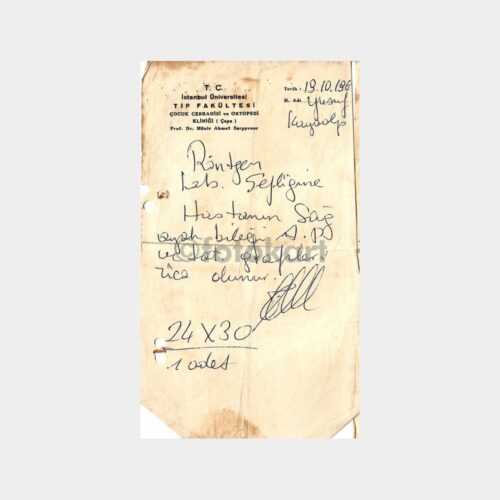 T. C.
İstanbul Üniversitesi
TIP FAKÜLTESİ
ÇOCUK CERRAHİSİ ve ORTOPEDİ
KLİNİĞİ ( Çapa )
Prof. Dr. Münir Ahmet Sarpyener
Tarih : 19.10.196
H. Adı Yusuf
Kayaalp
Röntgen
Lab. Şefliğine
Hastanın Sağ
ayak bileği A.P
ve Lat grafiler
rica olunur.
24 X 30
1 adet
©fotokart